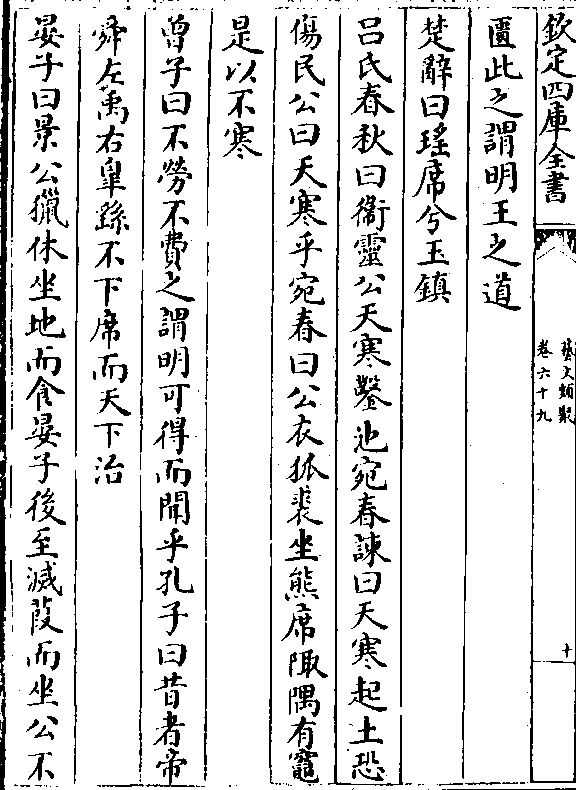 欽定四庫全書
藝文類聚
卷六十九
十
匱此之謂明王之道
楚辭曰瑤席兮玉鎮
呂氏春秋曰衛靈公天寒鑿池宛春諫曰天寒起土恐
傷民公曰天寒乎宛春曰公衣狐裘坐熊席陬隅有竈
是以不寒
曾子曰不勞不費之謂明可得而聞乎孔子曰昔者帝
舜左禹右皐繇不下席而天下治
晏子曰景公獵休坐地而食晏子後至滅葭而坐公不